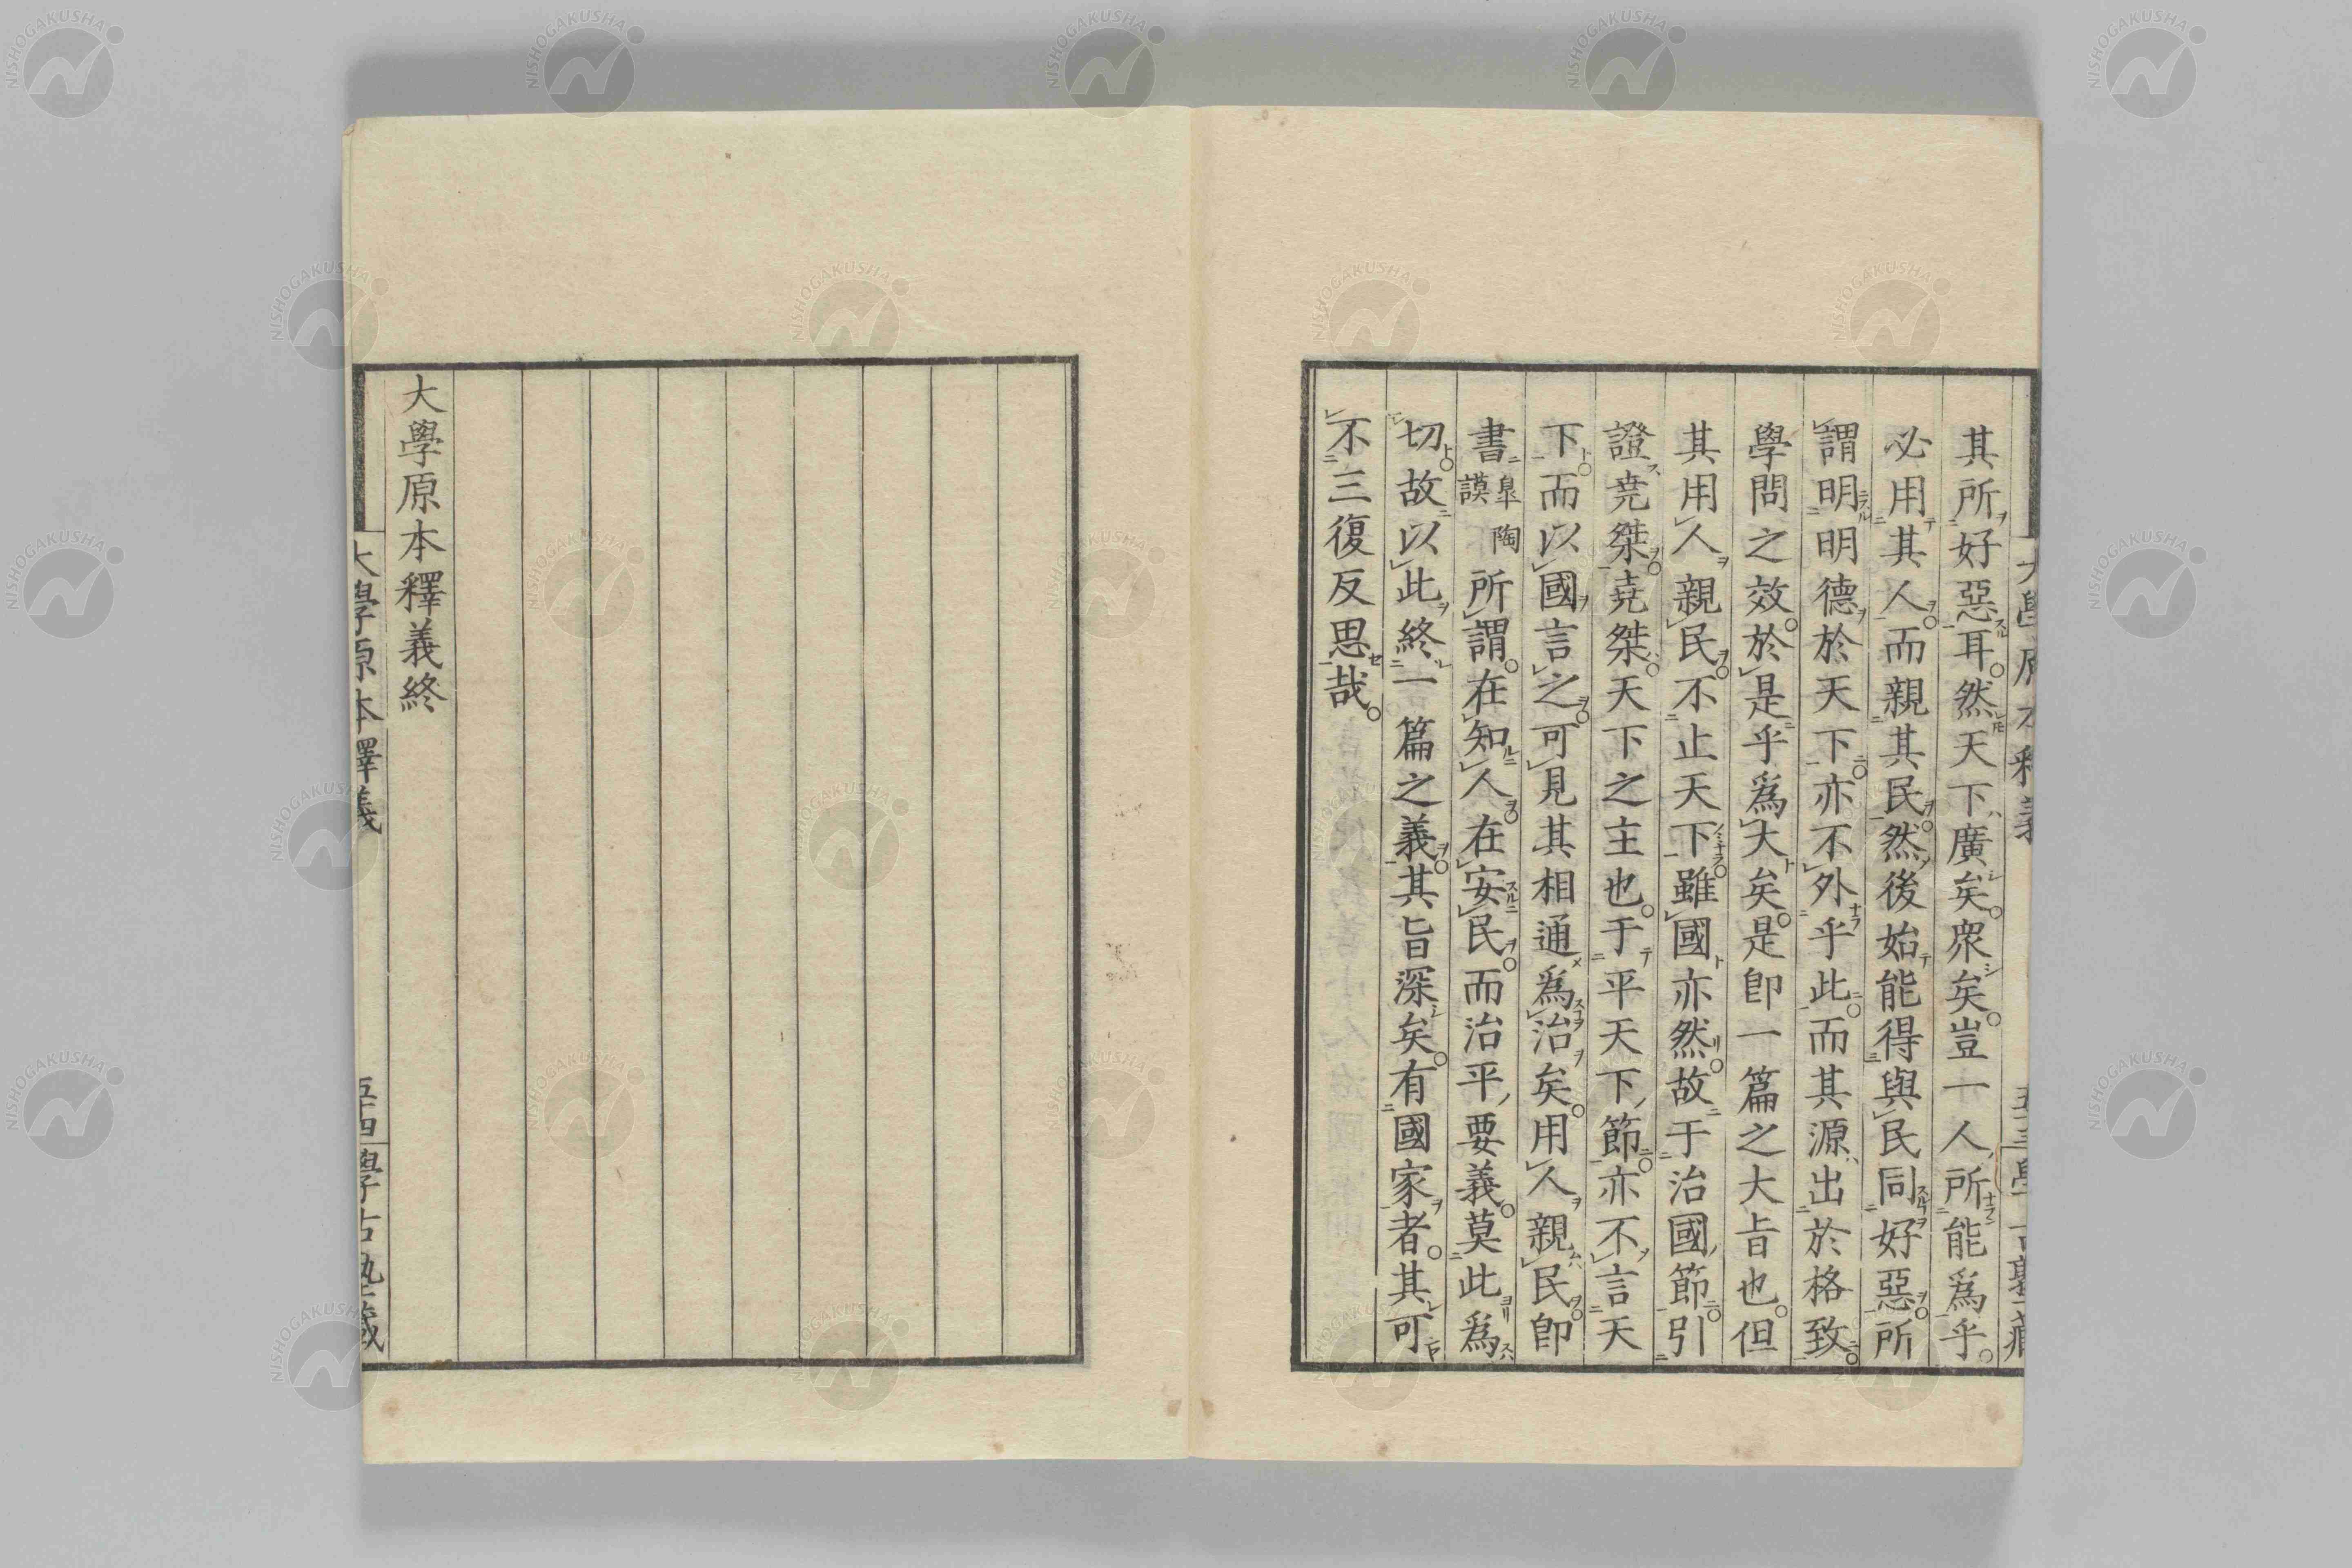 其所好惡耳。然天下廣矣。衆矣。豈一人所能爲乎。
必用其人。而親其民。然後始能得與民同好惡。所
謂明明德於天下。亦不外乎此。而其源出於格致。
學問之效。於是乎爲大矣。是卽一篇之大旨也。但
其用人親民。不止天下。雖國亦然。故于治國節。引
證堯桀。堯桀。天下之主也。于平天下節。亦不言天
下。而以國言之。可見其相通爲治矣。用人親民。卽
書皐陶謨所謂。在知人。在安民。而治平要義。莫此爲
切。故以此終一篇之義。其旨深矣。有國家者。其可
不三復反思哉。
大學原本釋義終
大學原本釋義
五十四
學古塾藏
NISHOGAKUSHA